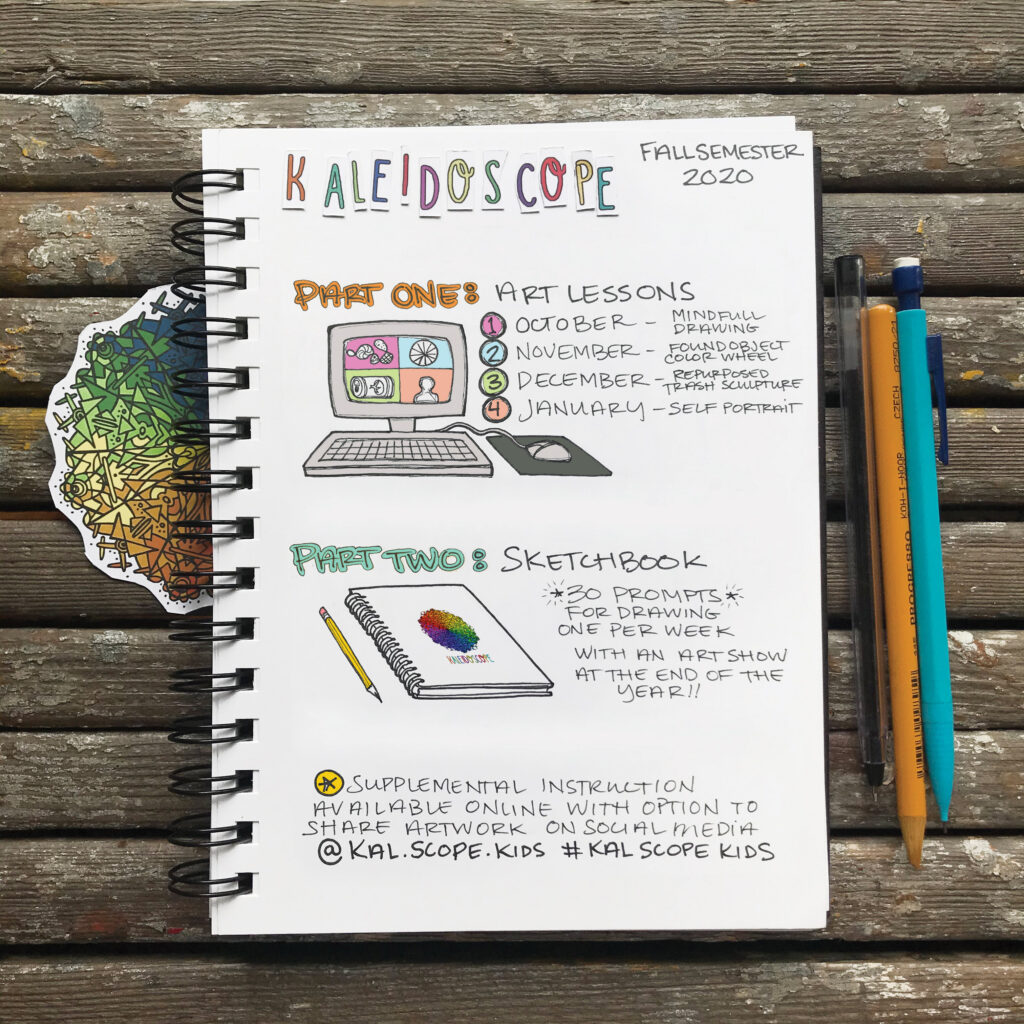 KALEIDOSCOPE
FALL SEMESTER
2020
PART ONE: ART LESSONS
1 OCTOBER - MINDFULL
DRAWING
2 NOVEMBER - FOUND OBJECT
COLOR WHEEL
3 DECEMBER - REPURPOSED
TRASH SCULPTURE
4 JANUARY - SELF PORTRAIT
PART TWO: SKETCHBOOK
*30 PROMPTS*
FOR DRAWING
ONE PER WEEK
WITH AN ART SHOW
AT THE END OF THE
YEAR!!
KALEIDOSCOPE
SUPPLEMENTAL INSTRUCTION
AVAILABLE ONLINE WITH OPTION TO
SHARE ARTWORK ON SOCIAL MEDIA
@KAL.SCOPE.KIDS #KALSCOPEKIDS
KOH-I-NOOR CZECH